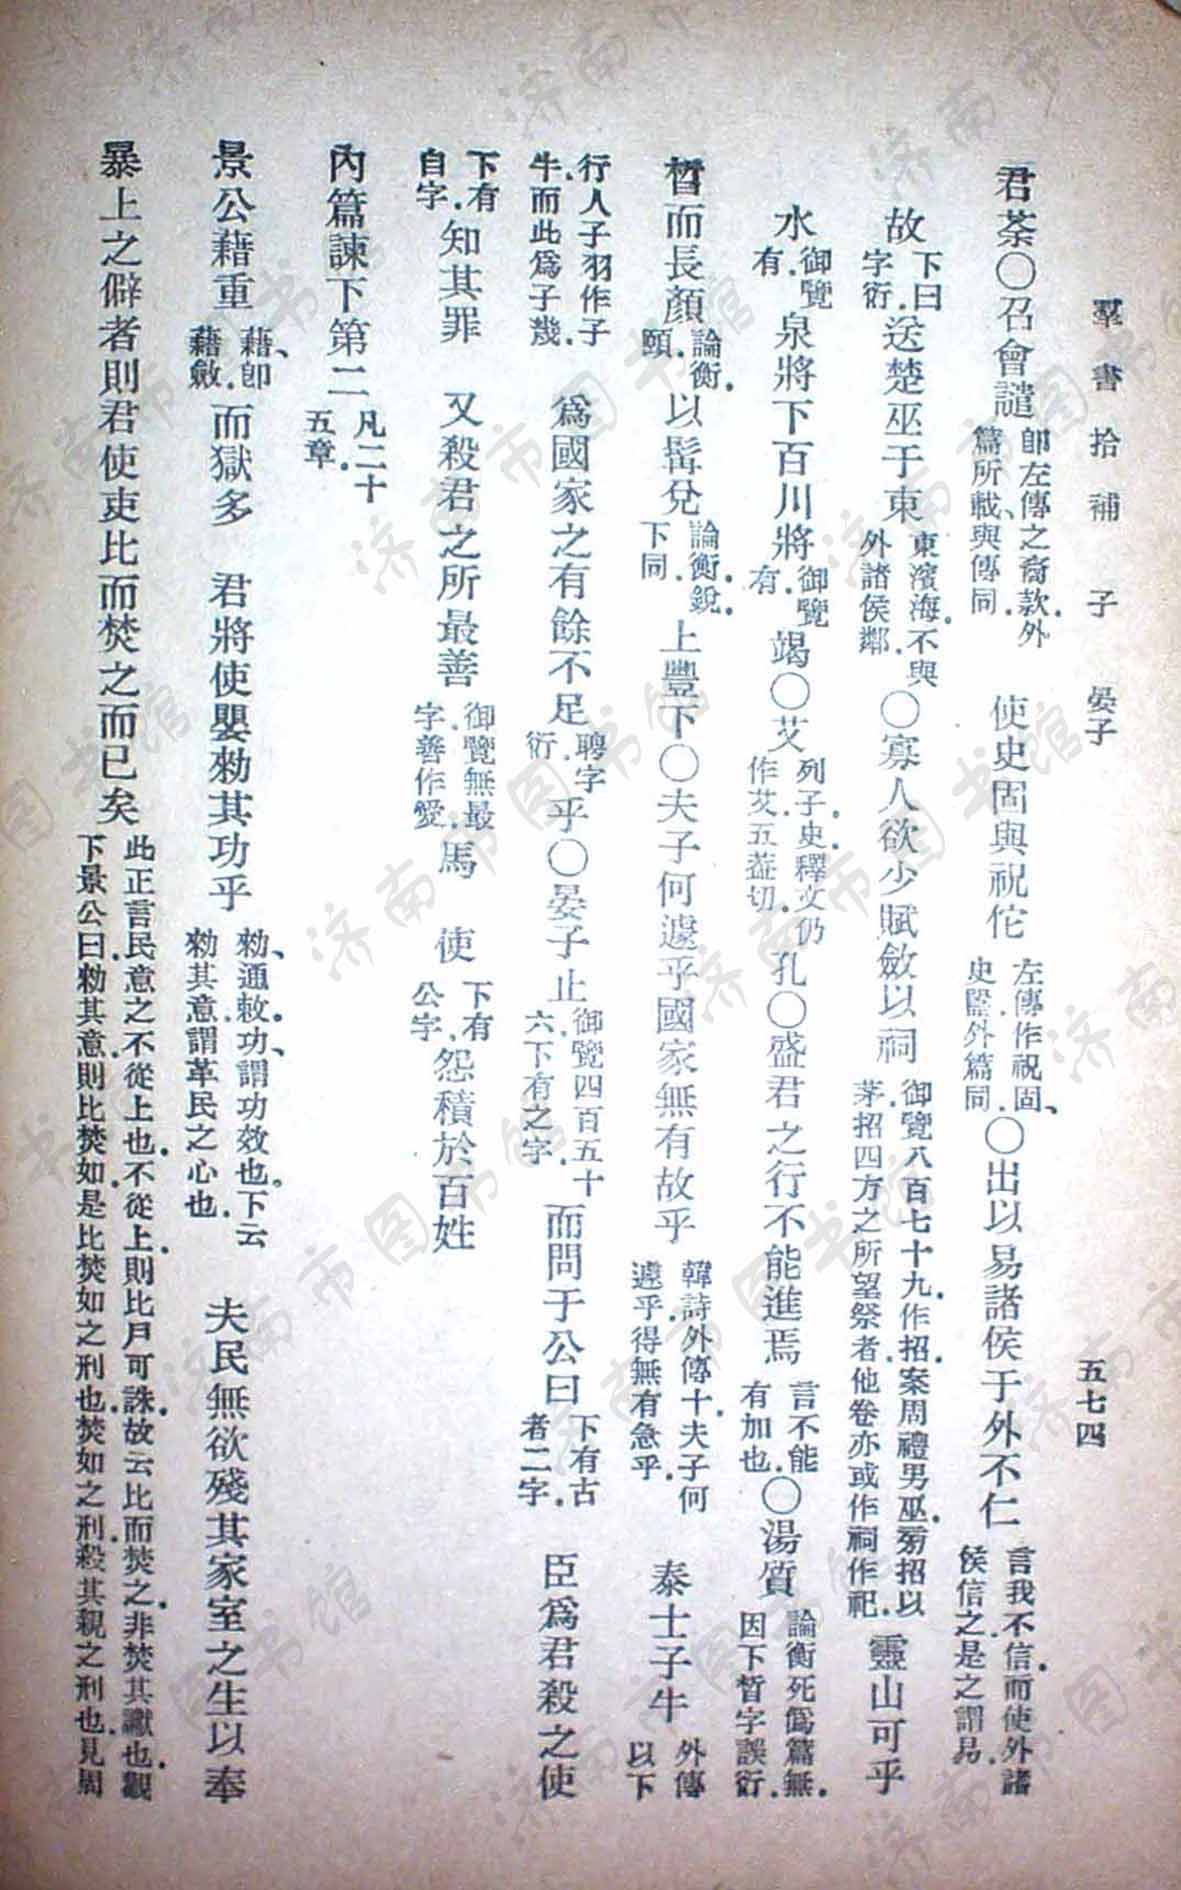 羣書拾補 子 晏子 五七四
君荼○召會譴 卽左傳之裔款外篇所載與傳同. 使史固與祝佗 左傳作祝固、史嚚.外篇同. ○出以易諸侯于外不仁 言我不信.而使外諸侯信之.是之謂易.
故 下曰字衍. 送楚巫于東 東濱海.不與外諸侯鄰. ○寡人欲少賦斂以祠 御覽八百七十九.作招.案周禮男巫.旁招以茅.招四方之所望祭者.他卷亦或作祠作祀. 靈山可乎
水 御覽有. 泉將下百川將 御覽有. 竭○艾 列子.史釋文仍作艾.五蓋切. 孔○盛君之行不能進焉 言不能有加也. ○湯質 論衡死僞篇無.因下晳字誤衍.
晳而長顏 論衡.頤. 以髯兌 論衡.銳.下同. 上豐下○夫子何遽乎國家無有故乎 韓詩外傳十.夫子何遽乎.得無有急乎. 泰士子牛 外傳以下
行人子羽作子牛.而此爲子幾. 爲國家之有餘不足 聘字衍. 乎○晏子止 御覽四百五十六.下有之字. 而問于公曰 下有古者二字. 臣爲君殺之使
下有自字. 知其罪 又殺君之所最善 御覽無最字.善作愛. 馬 使 下有公字. 怨積於百姓
內篇諫下第二 凡二十五章.
景公藉重 藉、卽藉斂. 而獄多 君將使嬰勑其功乎 勑、通敕.功、謂功效也.下云勑其意.謂革民之心也. 夫民無欲殘其家室之生以奉
暴上之僻者則君使吏比而焚之而已矣 此正言民意之不從上也.不從上.則比戶可誅.故云比而焚之.非焚其讞也.觀下景公曰.勑其意.則比焚如.是比焚如之刑也.焚如之刑.殺其親之刑也.見周